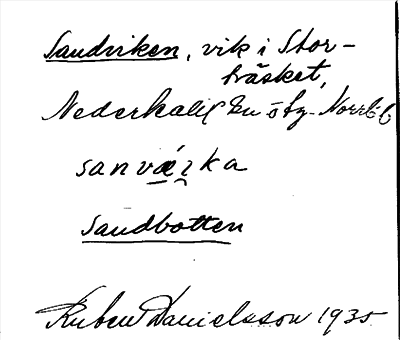 Sandviken, vik i Stor-
träsket,
Nederkalix sn ö bg. Norrb.
sanvæʹɩka
Sandbotten
Ruben Danielsson 1935